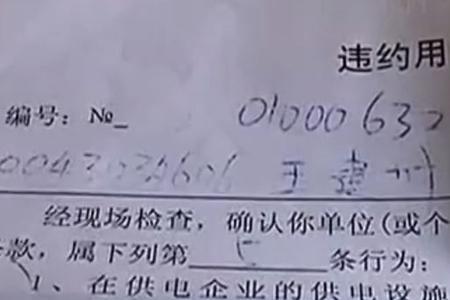 违约用
编号：№ 01000632
王
经现场检查，确认你单位(或个
款，属下列第 5 条行为：
1、在供电企业的供电设施